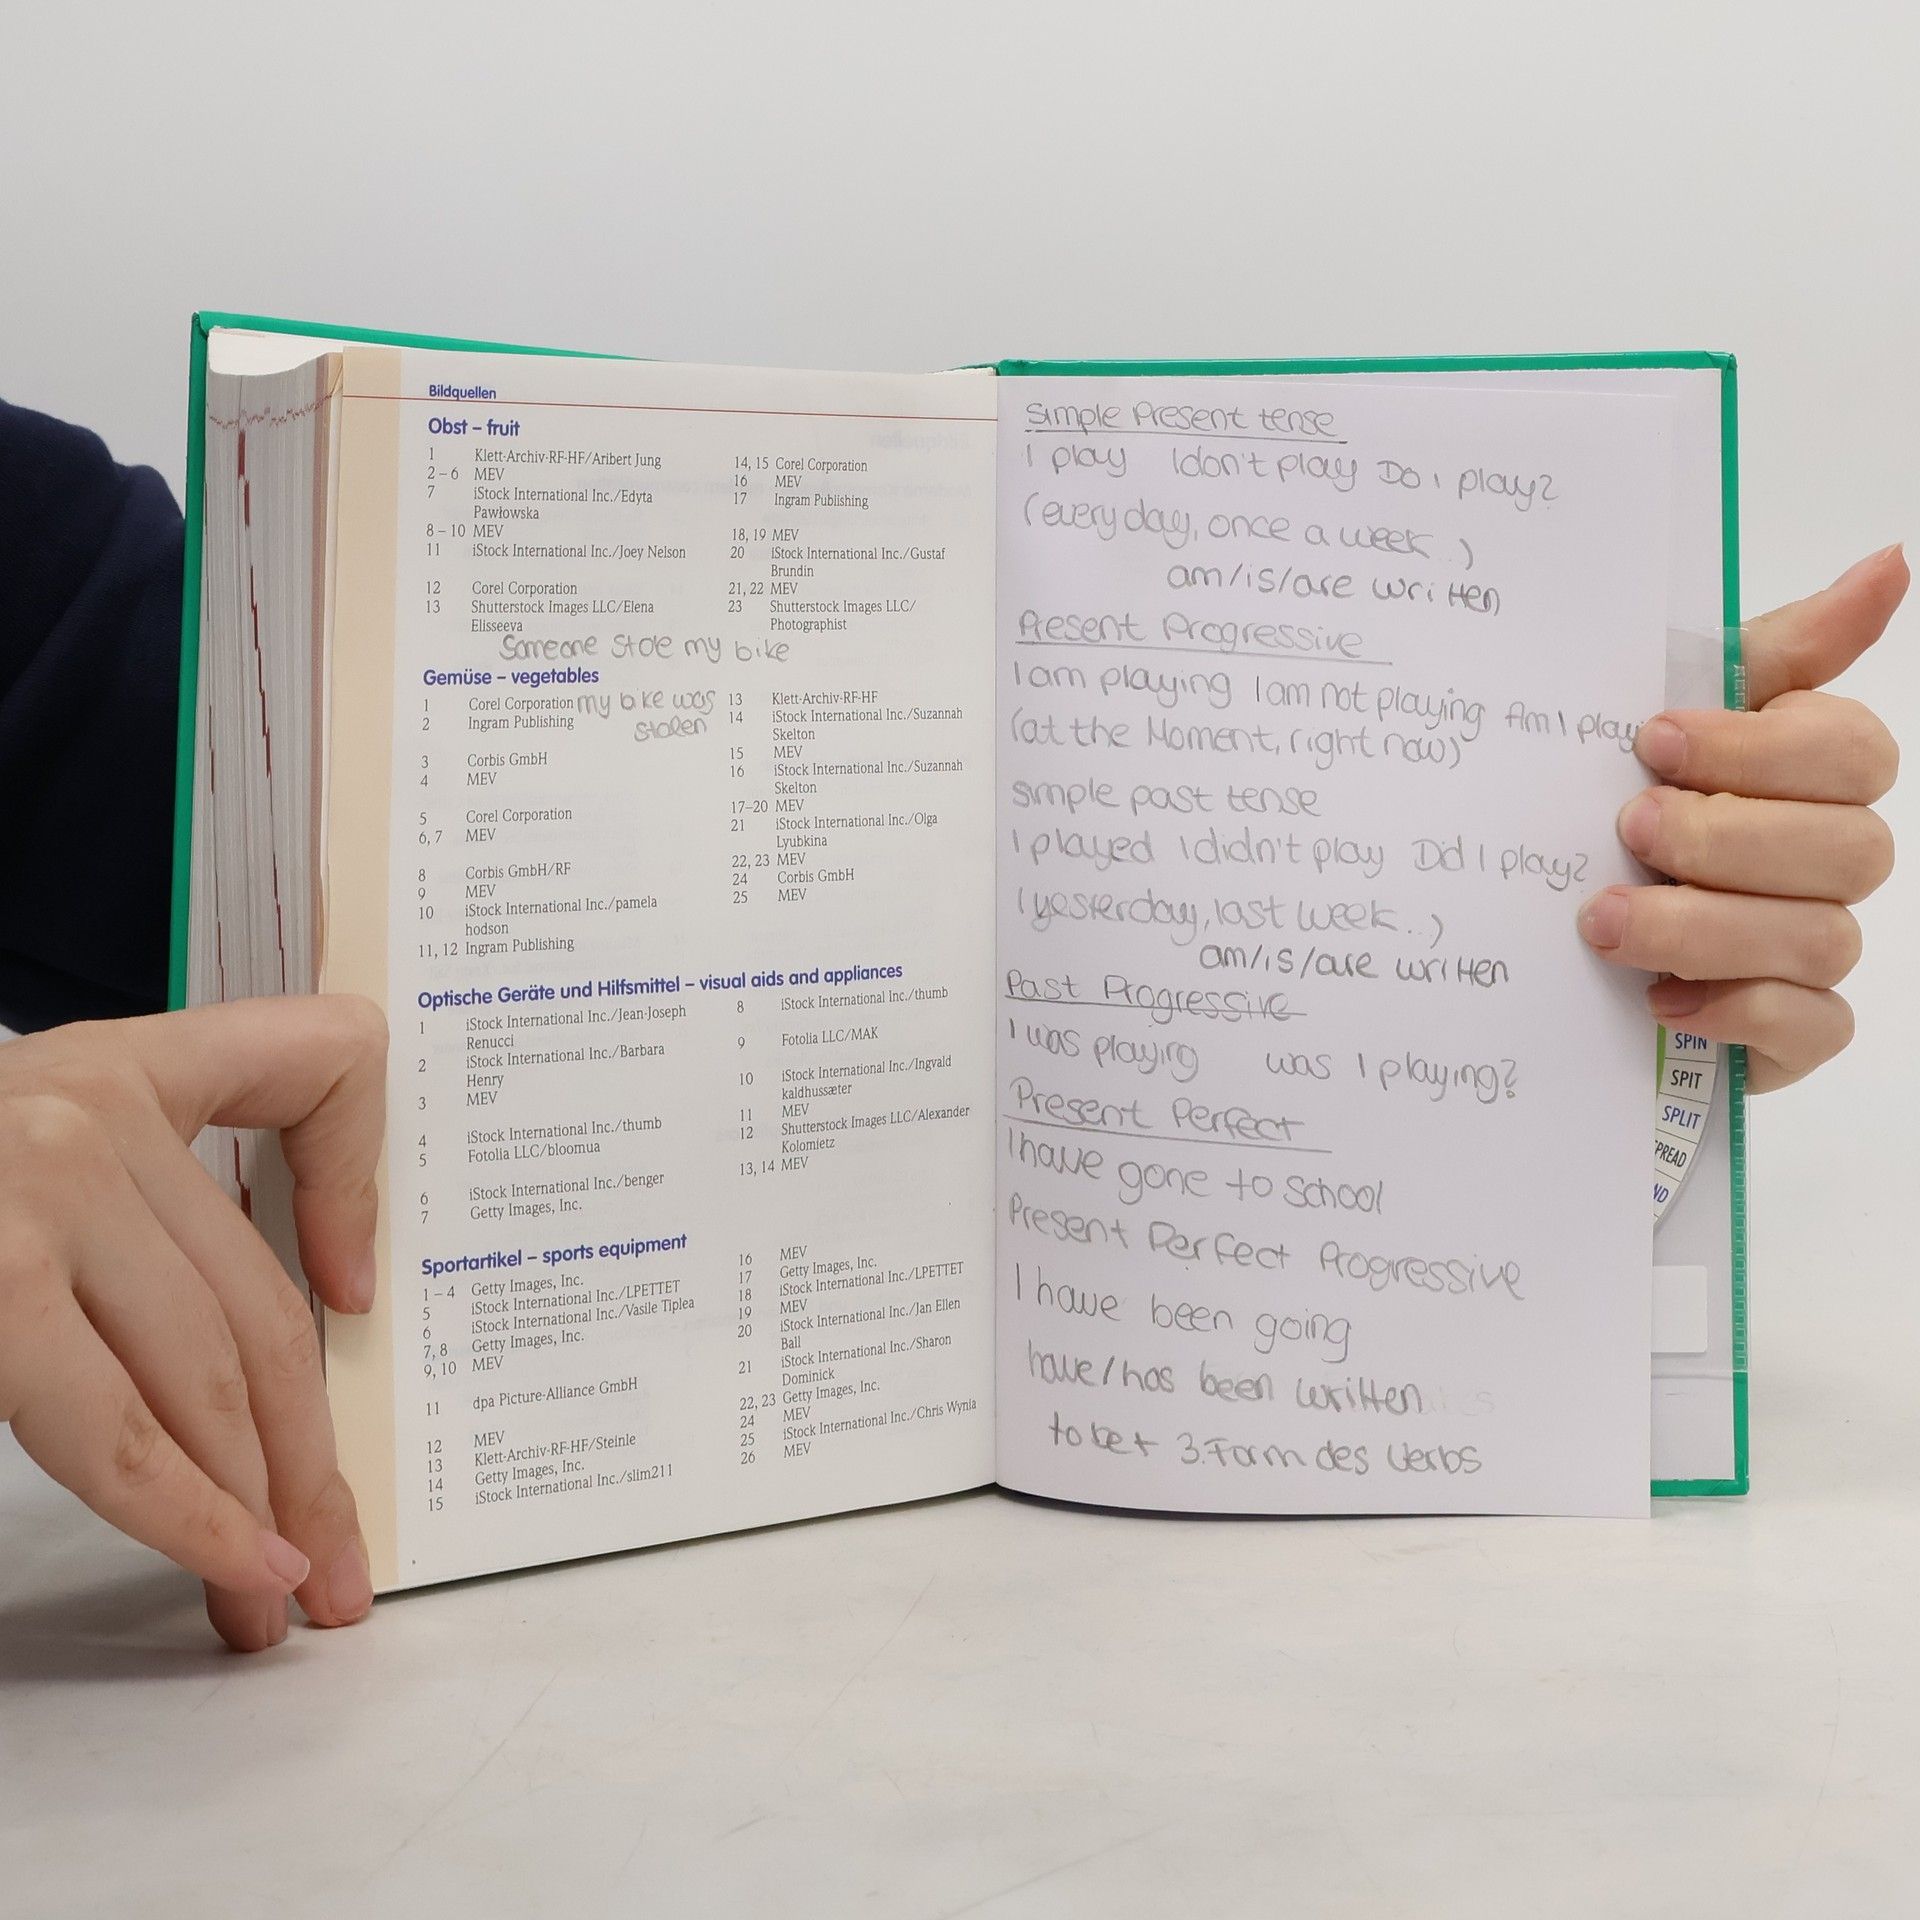 Bildquellen
Obst – fruit
1 Klett-Archiv-RF-HF/Aribert Jung
2 – 6 MEV
7 iStock International Inc./Edyta
Pawłowska
8 – 10 MEV
11 iStock International Inc./Joey Nelson
12 Corel Corporation
13 Shutterstock Images LLC/Elena
Elisseeva
14, 15 Corel Corporation
16 MEV
17 Ingram Publishing
18, 19 MEV
20 iStock International Inc./Gustaf
Brundin
21, 22 MEV
23 Shutterstock Images LLC/
Photographist
Someone stole my bike
Gemüse – vegetables
1 Corel Corporation
2 Ingram Publishing
my bike was
stolen
3 Corbis GmbH
4 MEV
5 Corel Corporation
6, 7 MEV
8 Corbis GmbH/RF
9 MEV
10 iStock International Inc./pamela
hodson
11, 12 Ingram Publishing
13 Klett-Archiv-RF-HF
14 iStock International Inc./Suzannah
Skelton
15 MEV
16 iStock International Inc./Suzannah
Skelton
17–20 MEV
21 iStock International Inc./Olga
Lyubkina
22, 23 MEV
24 Corbis GmbH
25 MEV
Optische Geräte und Hilfsmittel – visual aids and appliances
1 iStock International Inc./Jean-Joseph
Renucci
2 iStock International Inc./Barbara
Henry
3 MEV
4 iStock International Inc./thumb
5 Fotolia LLC/bloomua
6 iStock International Inc./benger
7 Getty Images, Inc.
8 iStock International Inc./thumb
9 Fotolia LLC/MAK
10 iStock International Inc./Ingvald
kaldhussæter
11 MEV
12 Shutterstock Images LLC/Alexander
Kolomietz
13, 14 MEV
Sportartikel – sports equipment
1 – 4 Getty Images, Inc.
5 iStock International Inc./LPETTET
6 iStock International Inc./Vasile Tiplea
7, 8 Getty Images, Inc.
9, 10 MEV
11 dpa Picture-Alliance GmbH
12 MEV
13 Klett-Archiv-RF-HF/Steinle
14 Getty Images, Inc.
15 iStock International Inc./slim211
16 MEV
17 Getty Images, Inc.
18 iStock International Inc./LPETTET
19 MEV
20 iStock International Inc./Jan Ellen
Ball
21 iStock International Inc./Sharon
Dominick
22, 23 Getty Images, Inc.
24 MEV
25 iStock International Inc./Chris Wynia
26 MEV
Simple Present tense
I play I don't play Do I play?
(every day, once a week..)
am/is/are written
Present Progressive
I am playing I am not playing Am I play
(at the Moment, right now)
simple past tense
I played I didn't play Did I play?
(yesterday, last week..)
am/is/are written
Past Progressive
I was playing was I playing?
Present Perfect
I have gone to school
Present Perfect Progressive
I have been going
have/has been written
to be + 3. Form des Verbs
SPIN
SPIT
SPLIT
PREAD
ND